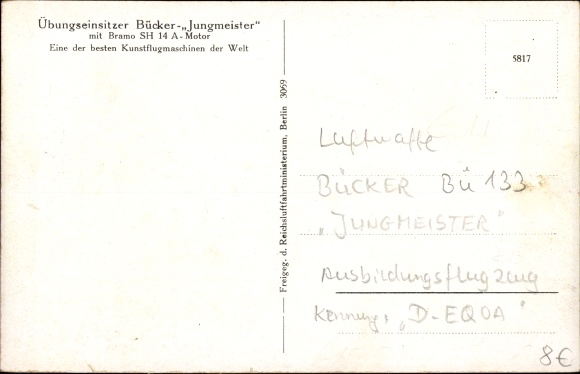 Übungseinsitzer Bücker-„Jungmeister“
mit Bramo SH 14 A-Motor
Eine der besten Kunstflugmaschinen der Welt
5817
Freigeg. d. Reichsluftfahrtministerium, Berlin 3059
Luftwaffe
BÜCKER BÜ 133
„JUNGMEISTER“
Ausbildungsflugzeug
Kennung: „D-EQOA“
8€